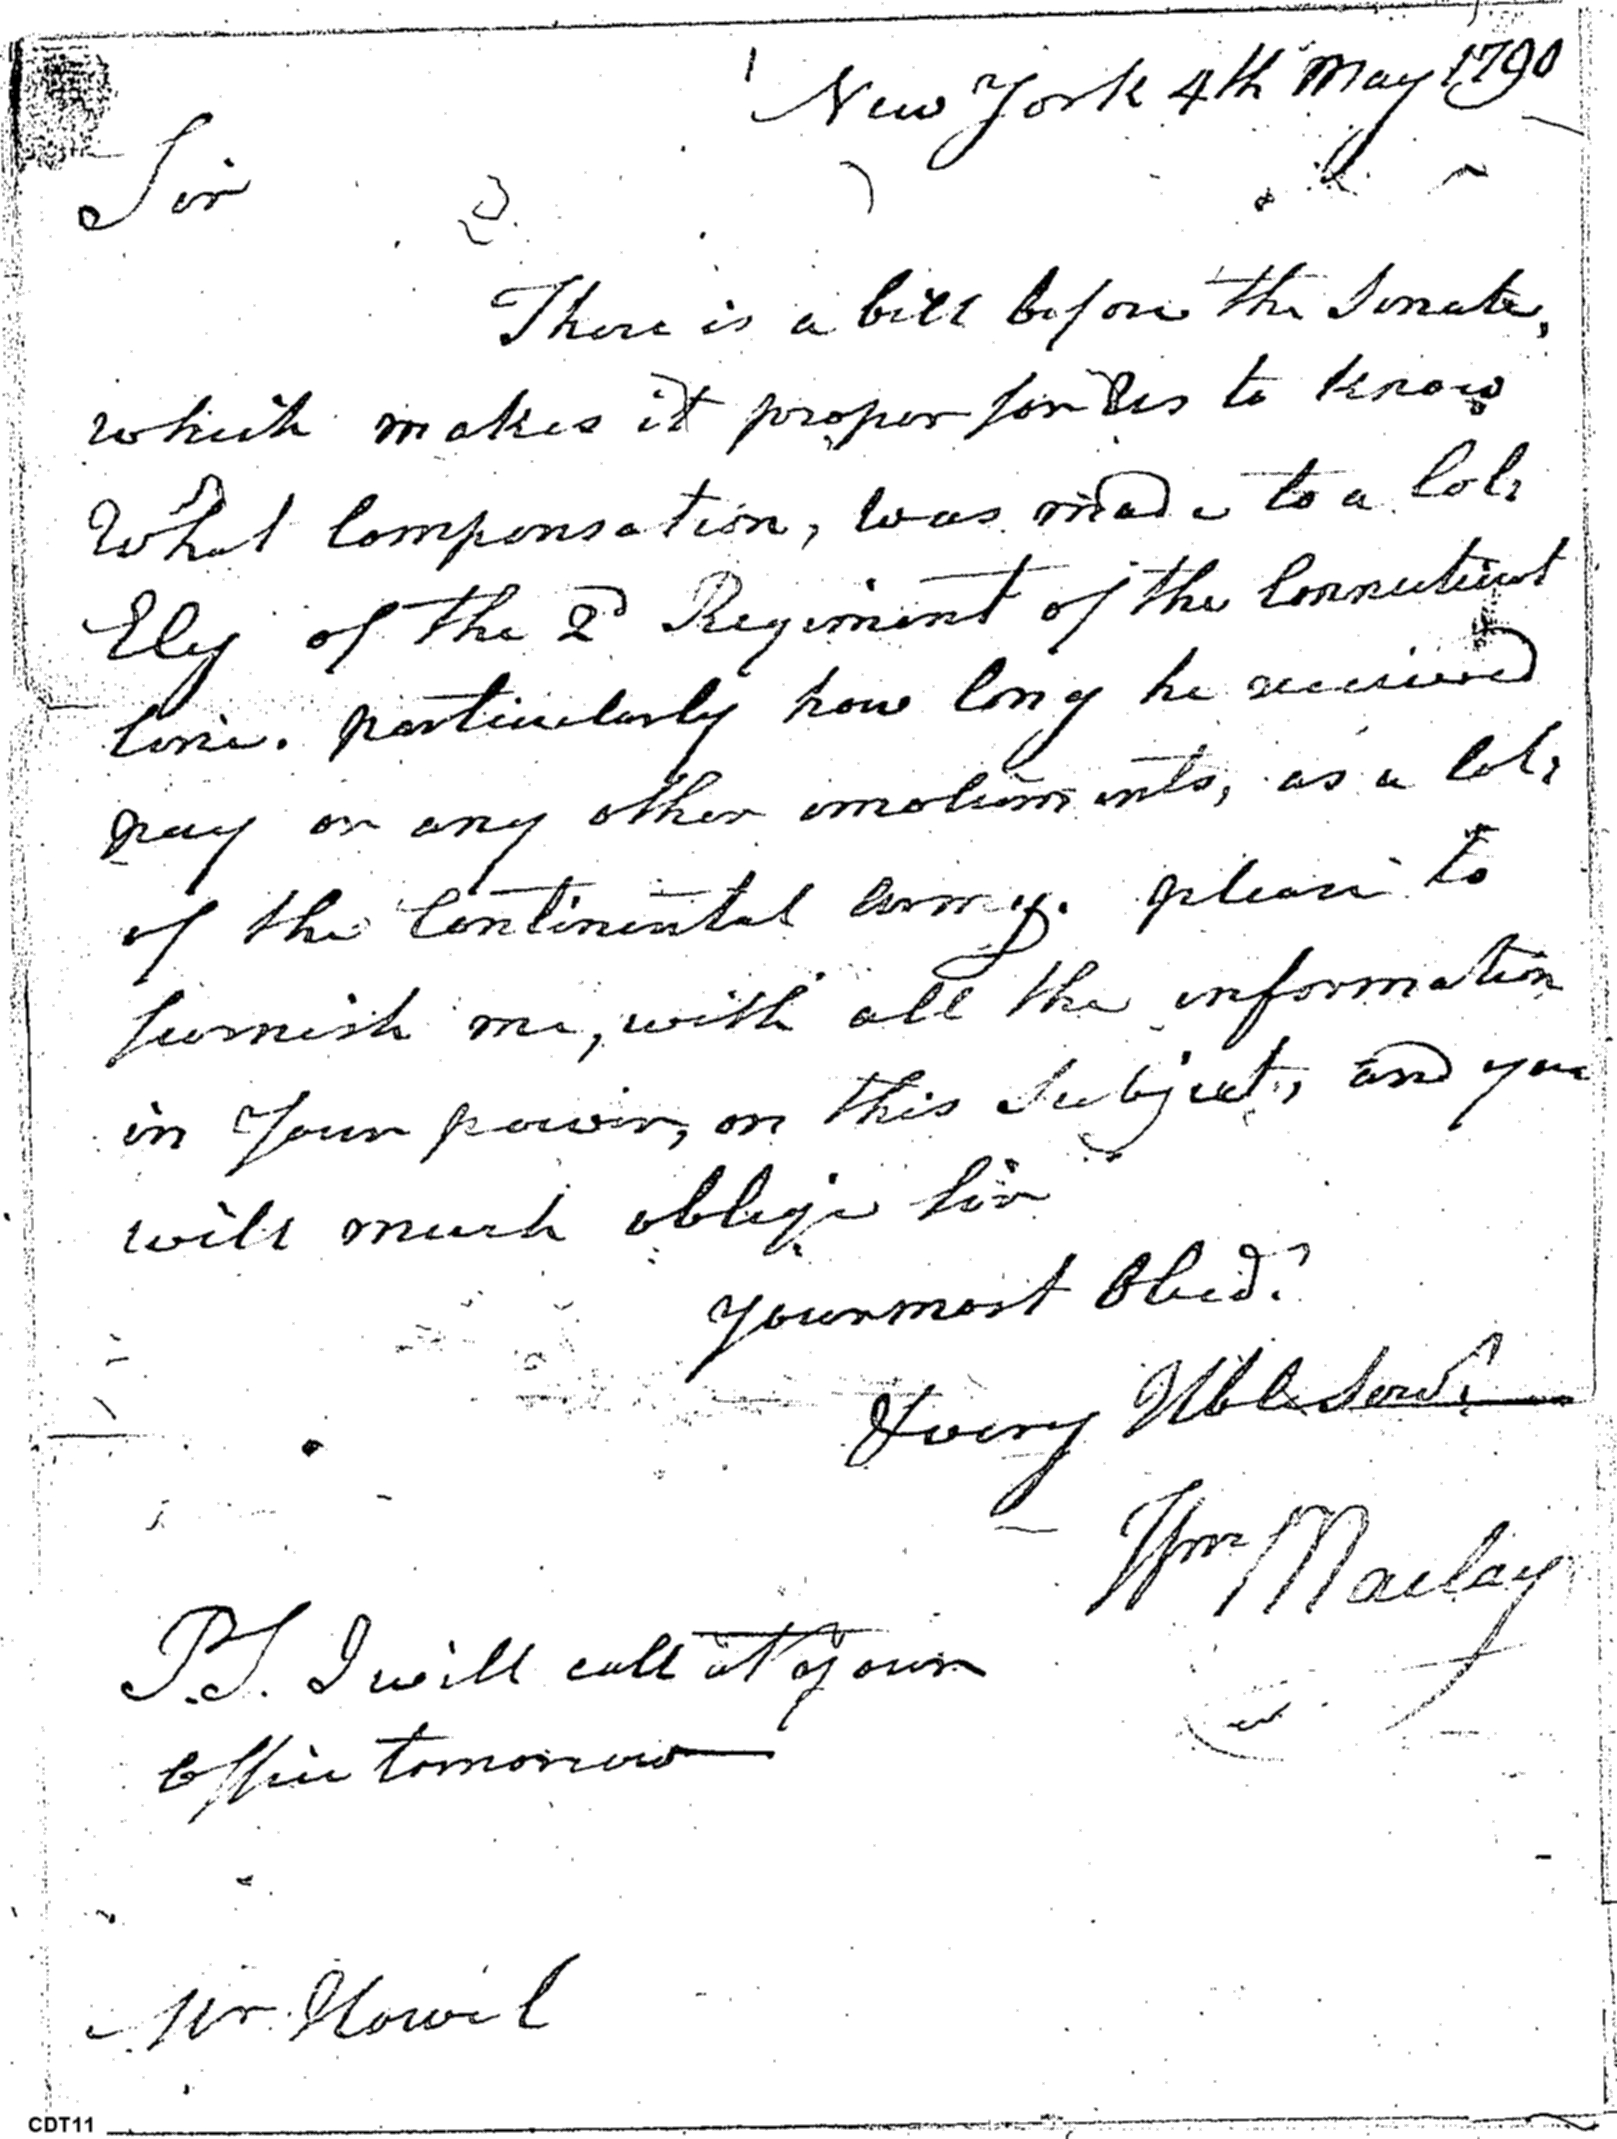 New York 4th May 1790
Sir
There is a bill before the Senate,
which makes it proper for Us to know
What Compensation, was made to a Col:
Ely of the 2d Regiment of the Connecticut
line. particularly how long he received
pay or any other emoluments, as a Col:
of the Continental Army. please to
furnish me, with all the information
in Your power, on this Subject, and you
will much oblige Sir
Your most Obed.t
& very Hble Servt
Wm Maclay
P.S. I will call at your
Office tomorrow
Mr. Howel
CDT11